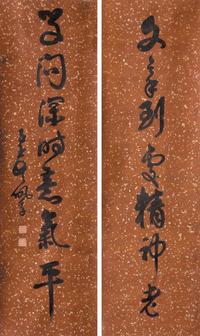 文章到處精神老
學問深時意氣平